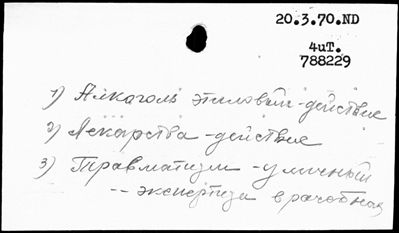 20.3.70.ND
4иT.
788229
1) Алкаголь этиловый-действие
2) Лекарства-действие
3) Травматизм-уличный
-- экспертиза врачебная